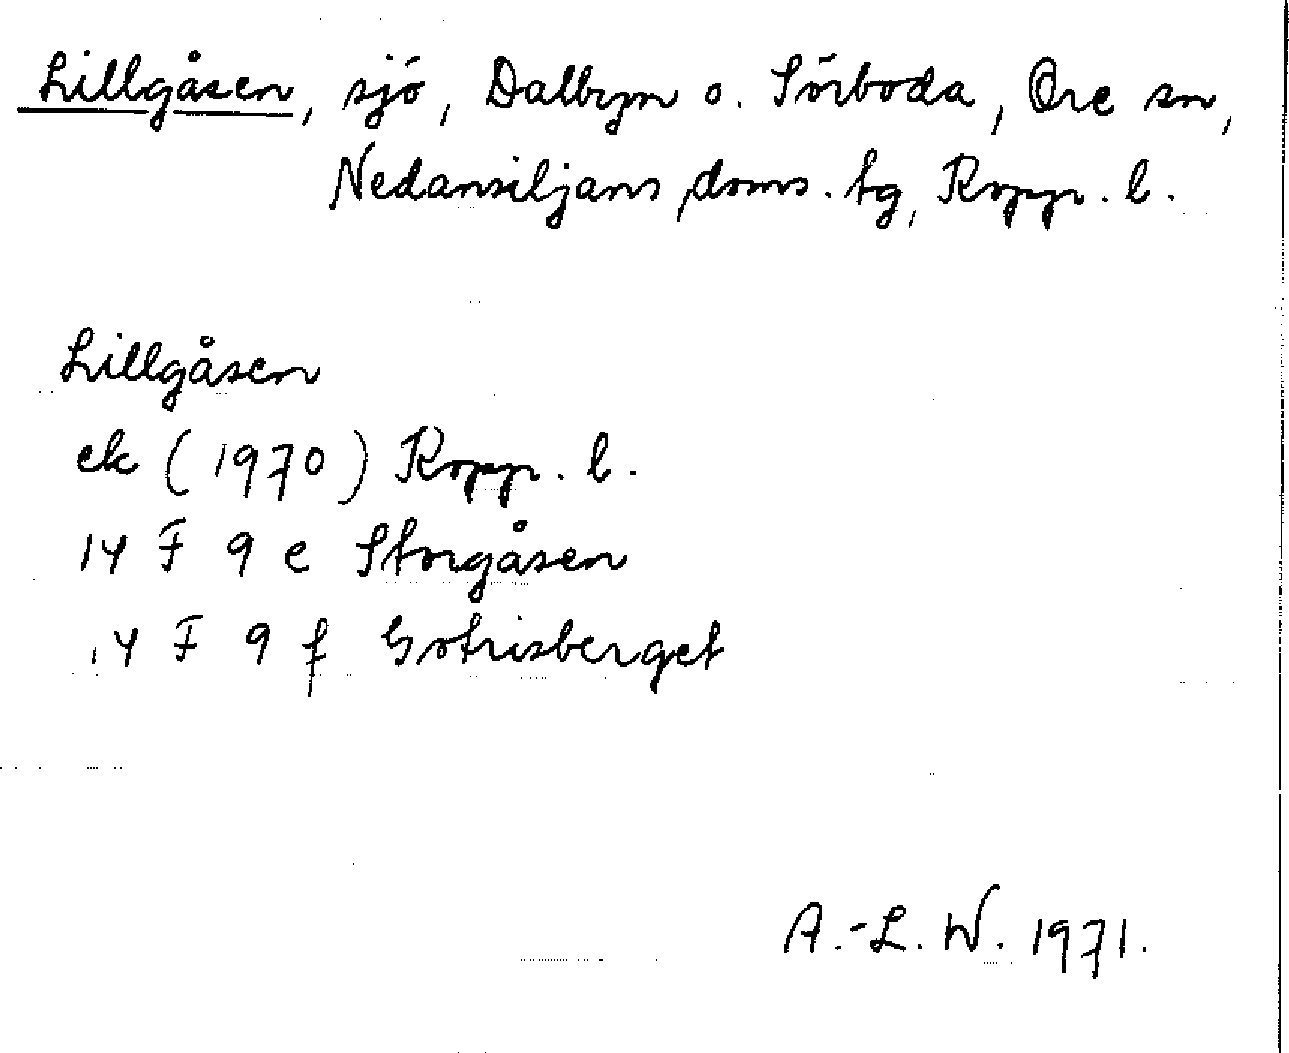 Lillgåsen, sjö, Dalbyn o. Sörboda, Ore sn,
Nedansiljans doms. tg, Kopp. l.
Lillgåsen
ek (1970) Kopp. l.
14 F 9 e Storgåsen
14 F 9 f Gotrisberget
A.-L. W. 1971.